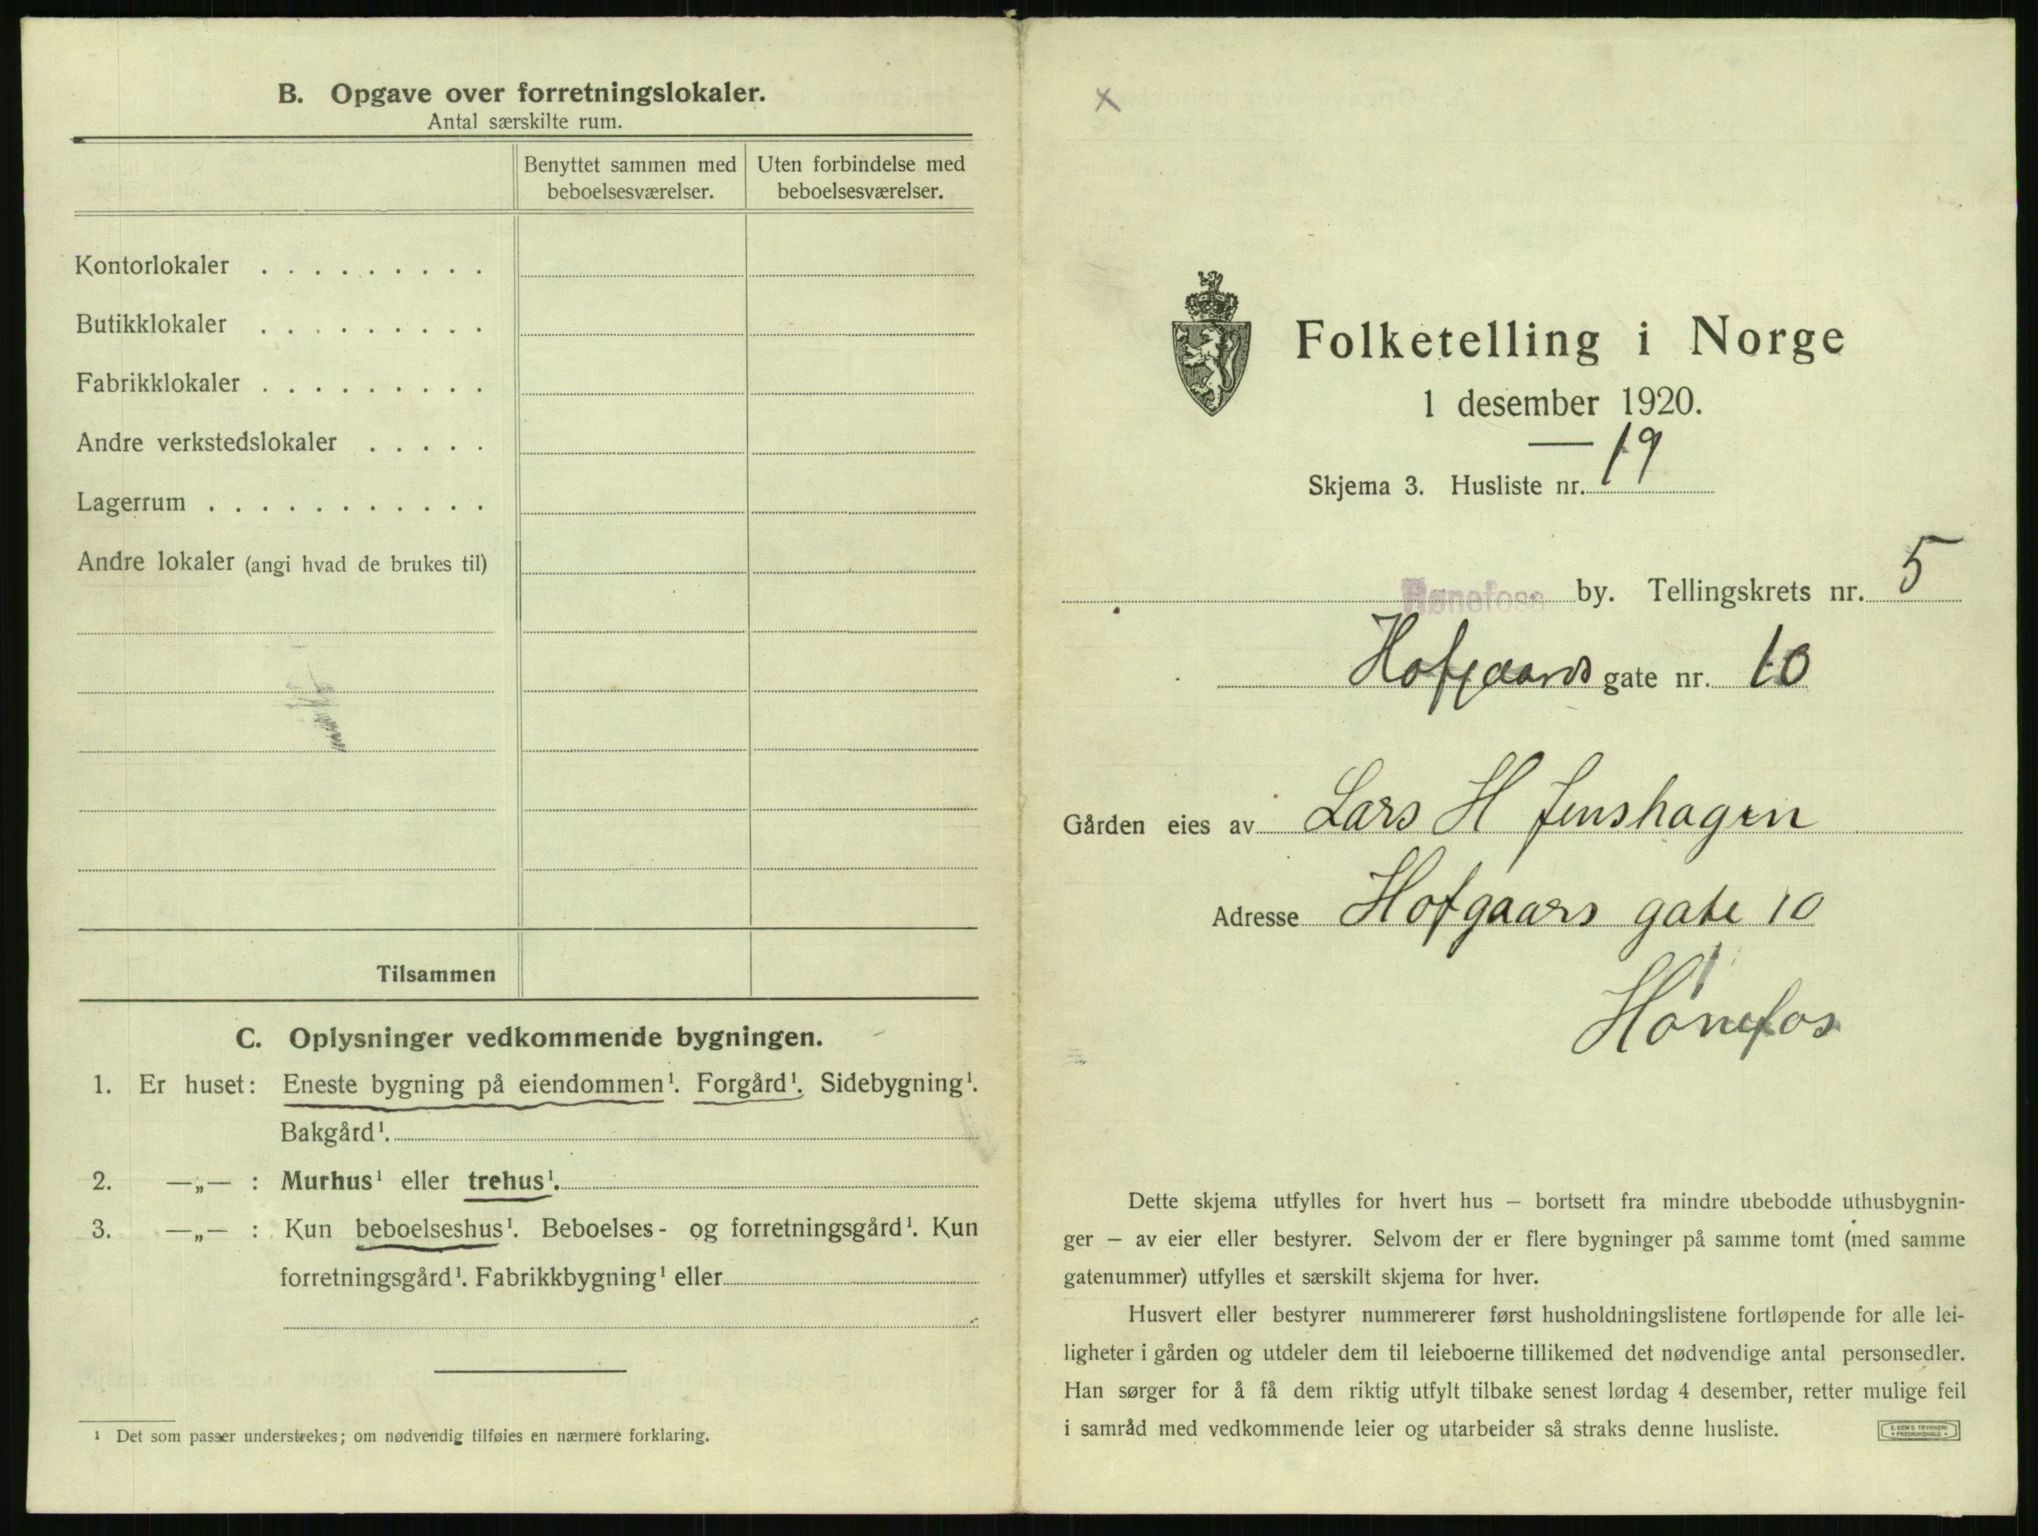 B. Opgave over forretningslokaler.
Antal særskilte rum.
Benyttet sammen med beboelsesværelser.
Uten forbindelse med beboelsesværelser.
Kontorlokaler . . . . . . . . .
Butikklokaler . . . . . . . . .
Fabrikklokaler . . . . . . . . .
Andre verkstedslokaler . . . . .
Lagerrum . . . . . . . . . . .
Andre lokaler (angi hvad de brukes til)
Tilsammen
C. Oplysninger vedkommende bygningen.
1. Er huset: Eneste bygning på eiendommen¹. Forgård¹. Sidebygning¹.
Bakgård¹.
2. —„— : Murhus¹ eller trehus¹.
3. —„— : Kun beboelseshus¹. Beboelses- og forretningsgård¹. Kun
forretningsgård¹. Fabrikkbygning¹ eller
¹ Det som passer understrekes; om nødvendig tilføies en nærmere forklaring.
x
Folketelling i Norge
1 desember 1920.
Skjema 3. Husliste nr. 19
Hønefoss by. Tellingskrets nr. 5
Hofgaards gate nr. 10
Gården eies av Lars H Jenshagen
Adresse Hofgaars gate 10
Hønefos
Dette skjema utfylles for hvert hus – bortsett fra mindre ubebodde uthusbygnin-
ger – av eier eller bestyrer. Selvom der er flere bygninger på samme tomt (med samme
gatenummer) utfylles et særskilt skjema for hver.
Husvert eller bestyrer nummererer først husholdningslistene fortløpende for alle lei-
ligheter i gården og utdeler dem til leieboerne tillikemed det nødvendige antal personsedler.
Han sørger for å få dem riktig utfylt tilbake senest lørdag 4 desember, retter mulige feil
i samråd med vedkommende leier og utarbeider så straks denne husliste.
E. SEM'S TRYKKERI
FREDRIKSHALD